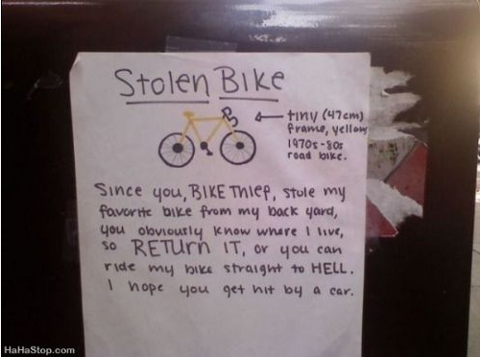 Stolen Bike
tiny (47cm)
frame, yellow
1970s-80s
road bike.
Since you, BIKE THIEF, stole my
favorite bike from my back yard,
you obviously know where I live,
so RETURN IT, or you can
ride my bike straight to HELL.
I hope you get hit by a car.
HaHaStop.com